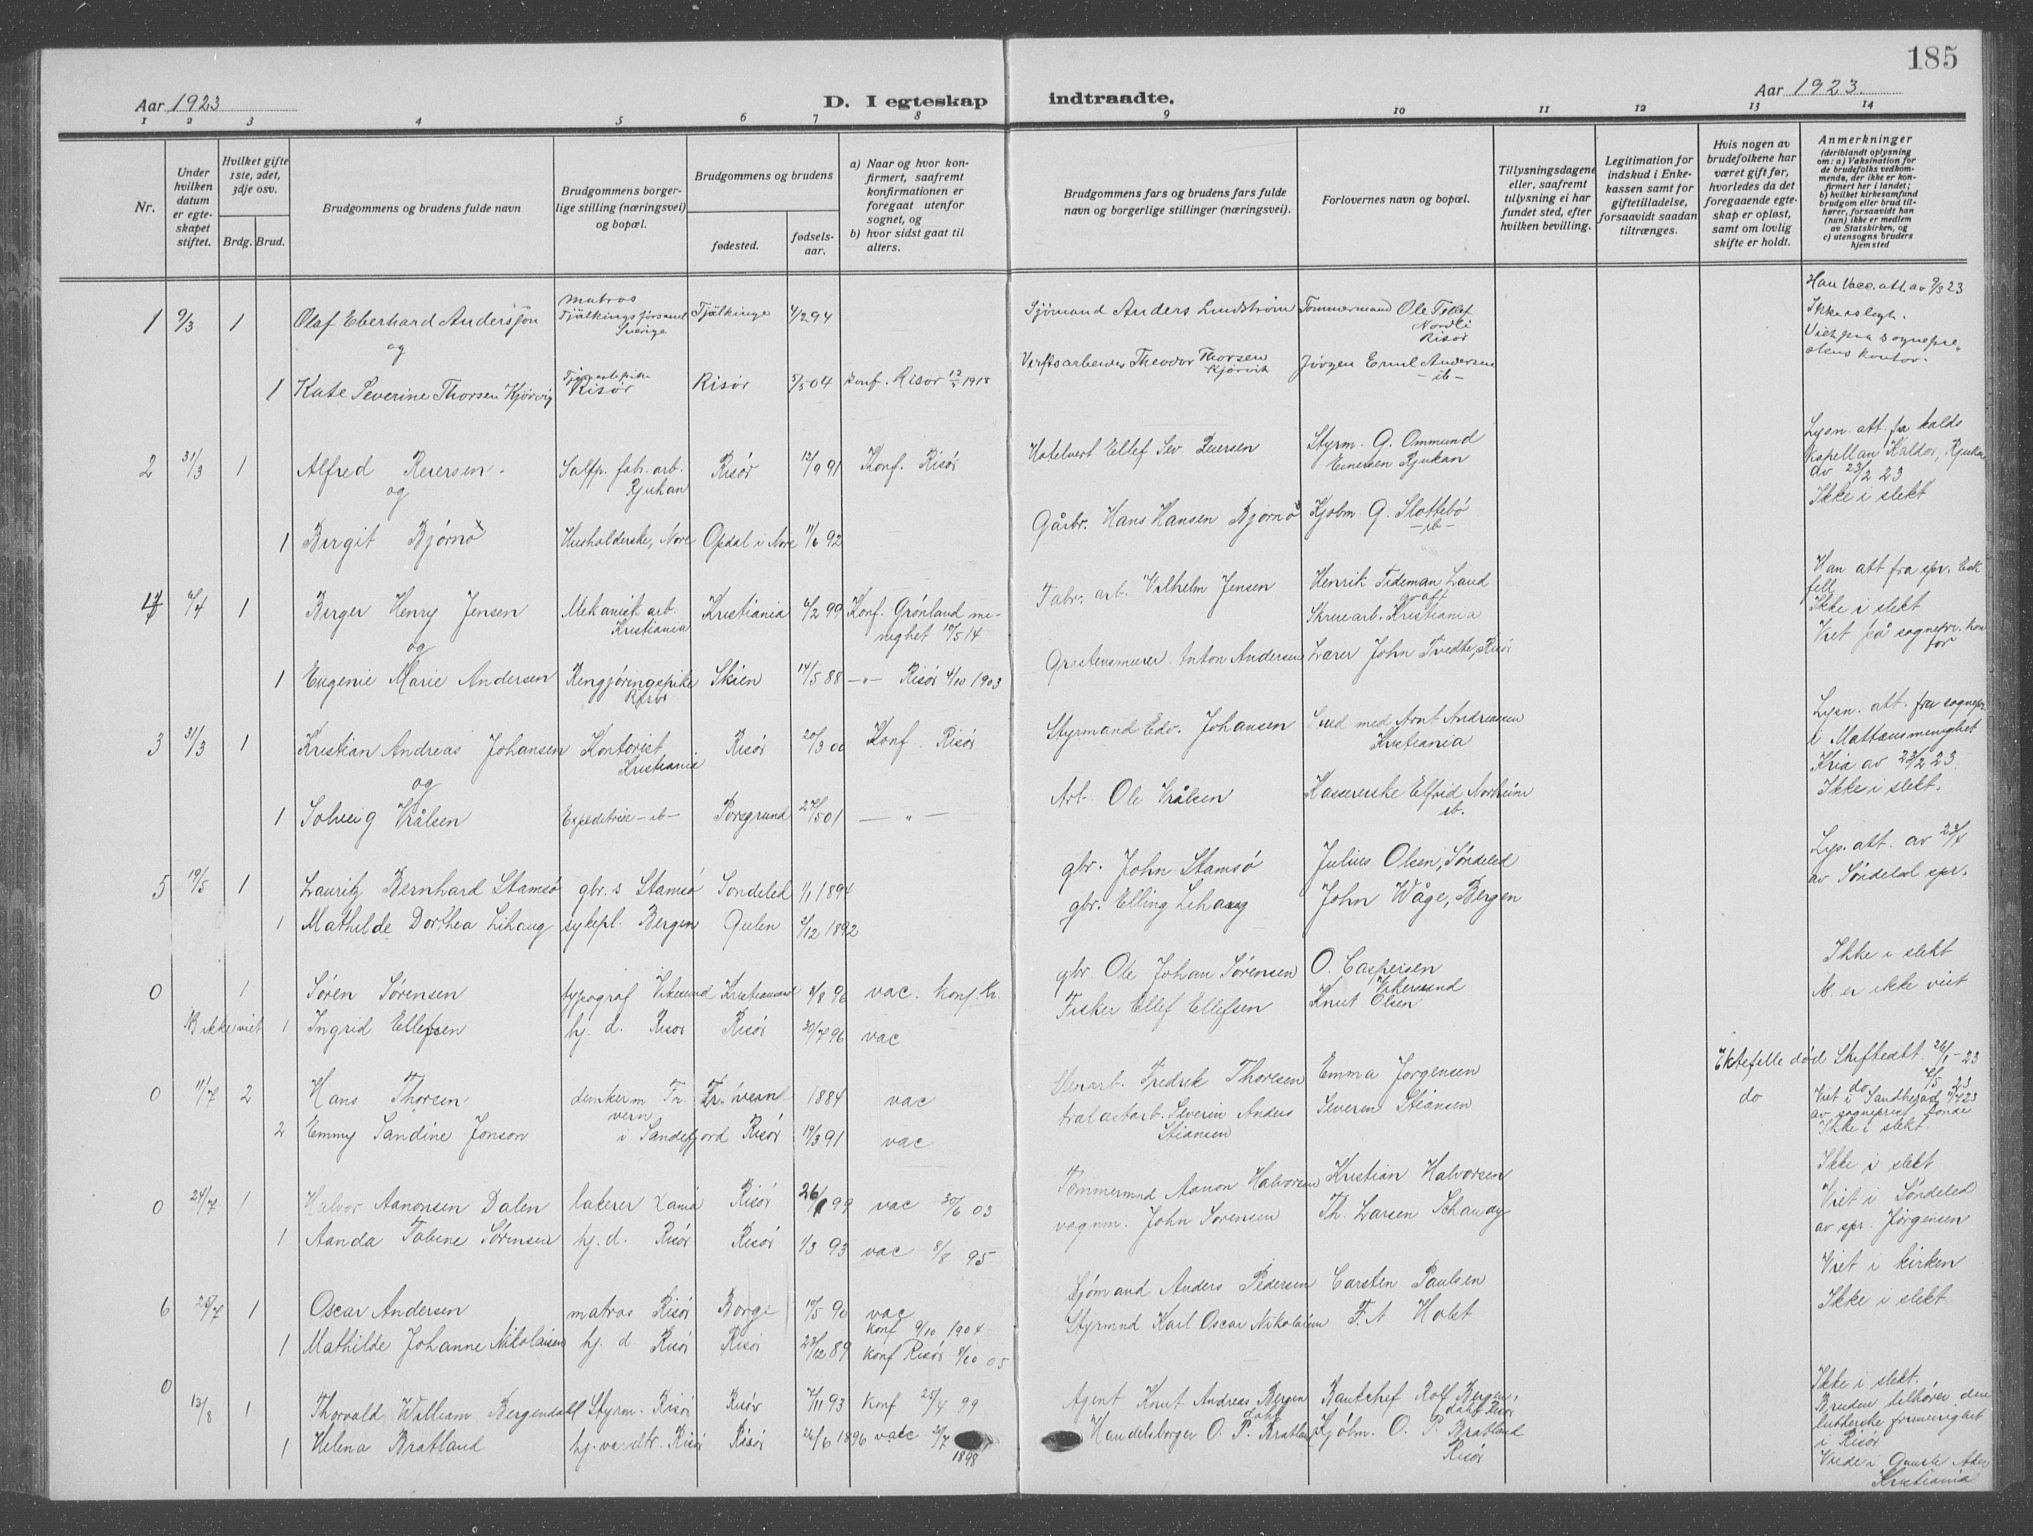 185
Aar 1923
D. I egteskap indtraadte.
Aar 1923.
1 2 3 4 5 6 7 8 9 10 11 12 13 14
Nr.
Under hvilken datum er egteskapet stiftet.
Hvilket gifte 1ste, 2det, 3dje osv.
Brdg. Brud.
Brudgommens og brudens fulde navn
Brudgommens borgerlige stilling (næringsvei) og bopæl.
Brudgommens og brudens
fødested.
fødselsaar.
a) Naar og hvor konfirmert, saafremt konfirmationen er foregaat utenfor sognet, og
b) hvor sidst gaat til alters.
Brudgommens fars og brudens fars fulde navn og borgerlige stillinger (næringsvei).
Forlovernes navn og bopæl.
Tillysningsdagene eller, saafremt tillysning ei har fundet sted, efter hvilken bevilling.
Legitimation for indskud i Enkekassen samt for giftetilladelse, forsaavidt saadan tiltrænges.
Hvis nogen av brudefolkene har været gift før, hvorledes da det foregaaende egteskap er opløst, samt om lovlig skifte er holdt.
Anmerkninger
(deriblandt oplysning om: a) Vaksination for de brudefolks vedkommende, der ikke er konfirmert her i landet; b) hvilket kirkesamfund brudgom eller brud tilhører, forsaavidt han (hun) ikke er medlem av Statskirken, og c) utensogns bruders hjemsted
1 9/3 1 Olaf Eberhard Andersson matros Tjälkinge Sverige Tjälkinge 4/2 94 Sjømand Anders Lindstrøm Tømmermand Ole Tellef Nordli Risør Han Vacc. att. av 9/3 23
Ikke i slegt.
Viet paa sogneprestens kontor.
og
1 Kate Severine Thorsen Kjørvig Risør Risør 5/5 04 Konf. Risør 1918 Verftsarbeider Theodor Thorsen Kjørvik Jørgen Emil Andersen -ib-
2 31/3 1 Alfred Reiersen Salp. fab. arb. Rjukan Risør 12/9 91 Konf. Risør Hotelvert Ellef Sev Reiersen Styrm. G. Ommund Eines­sen Rjukan Lysn. att. fra
Kapellan Kaldor, Rjukan
av 23/2 23
Ikke i slekt
og
1 Birgit Bjørnø Husholderske, Nore Opdal i Nore 11/6 92 Gårbr. Hans Hansen Bjørnø Kjøbm. G. Slottebø -ib-
4 6/4 1 Birger Henry Jensen Mekanisk arb. Kristiania Kristiania 6/2 99 Konf. Grønland menighet 17/5 14 Fabr. arb. Vilhelm Jensen Henrik Tideman Laud Skruearb. Kristiania Han att fra spr.
Ikke i slekt
Viet på sognepr. kontor
og
1 Eugenie Marie Andersen Rengjøringspike Risør Skien 14/5 88 -"- Risør 4/10 1903 Gråstensmurer Anton Andersen Lærer John Tvedte, Risør
3 31/3 1 Kristian Andreas Johansen Kontorist Kristiania Risør 20/3 00 Konf. Risør Styrmand Edv. Johansen Arnt Andreassen Kristiania Lysn. att. fra sognepr.
i Mattæusmenighet
Kria av 23/2 23
Ikke i slekt.
og
1 Solveig Vrålsen Expeditrise -ib- Porsgrund 27/5 01 - " - Arb. Ole Vrålsen Kassererske Elfrid Norheim ib.
5 19/5 1 Lauritz Bernhard Stamsø gbr. s Stamsø Søndeled 1/1 1894 gbr. John Stamsø Julius Olsen, Søndeled Lys. att. av
av Søndeled spr.
1 Mathilde Dorthea Lihaug sykepl. Bergen Gulen 2/12 1892 gbr. Elling Lihaug John Wåge, Bergen
0 1 Søren Sørensen typograf Vikesund Kristiansand 4/8 96 vac. Konf. Kr. gbr. Ole Johan Sørensen O. Caspersen Vikersund Ikke i slekt
N. er ikke viet
NB ikke viet 1 Ingrid Ellefsen hj. d. Risør Risør 30/7 96 vac Fisker Ellef Ellefsen Knut Olsen
0 11/7 2 Hans Thorsen Fr. vern Fr. vern 1884 vac Stenarb. Fredrik Thorsen Emma Jørgensen Ektefelle død Skifteatt. 26/1-23
2 Emmy Sandine Jonson i Sandefjord Risør 19/3 91 vac Severin Anders Stiansen Severin Stiansen do do 4/5 23
Viet i Sandherad
av sogneprest
Ikke i slekt
0 24/7 1 Halvor Aanonsen Dalen lakerer Risør 26/1 99 vac 30/6 03 Tømmermnd Aanon Halvorsen Kristian Halvorsen Ikke i slekt
Viet i Søndeled
av spr. Jørgensen
1 Aanda Tobine Sørensen hj. d. Risør Risør 1/3 93 vac 8/8 95 vognm. John Sørensen Th. Larsen Schanay
6 28/7 1 Oscar Andersen matros Risør Borge 10/5 90 vac konf 9/10 1904 Sjømand Anders Pedersen Carsten Paulsen Viet i kirken
Ikke i slekt
1 Mathilde Johanne Nikolaisen hj. d Risør Risør 23/12 89 konf Risør 8/10 05 Styrmnd Karl Oscar Nikolaisen F. A Holst
0 13/8 1 Thorvald William Bergendahl Styrm. Risør Risør 7/11 93 Konf 25/4 99 Agent Knut Andreas Bergendahl Bankchef Rolf Bergendahl Risør Ikke i slekt.
Bruden tilhører den
lutherske frimenighet
i Risør
Viede i Gamle Aker
Kristiania
1 Helena Bratland Risør Risør 26/6 1896 vac 2/7 1898 Handelsborger O. P. Bratland Kjøbm. O. P. Bratland Risør